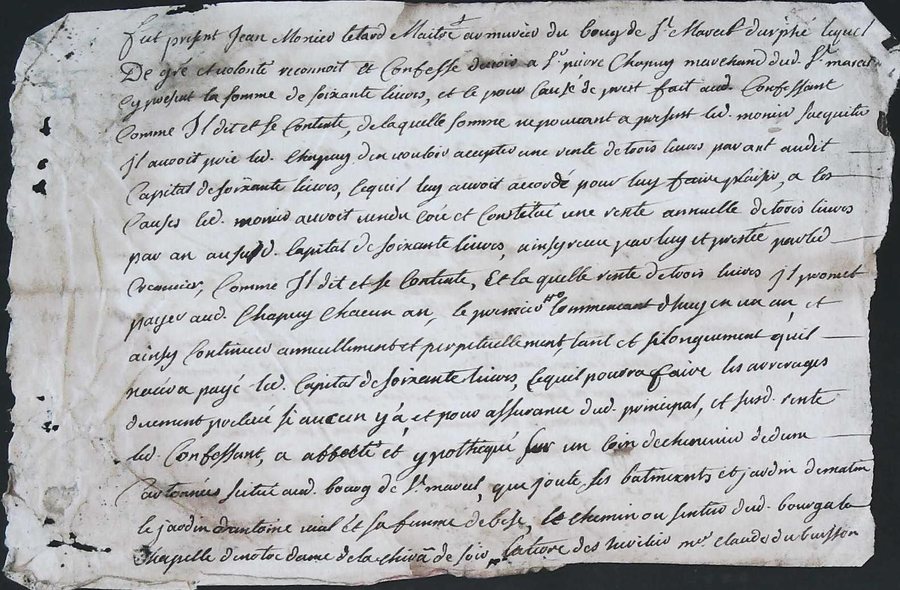 fut present Jean Monier letard Maitre armurier du bourg de St. Marcel durphé lequel
De gré et volonté reconnoit et Confesse devoir a Sr. pierre Chapuy marchand dud. St. marcel
cy present la somme de soixante livres, et ce pour Cause de prest fait aud. Confessant
Comme Il dit et se Contente, de laquelle somme ne pouvant a present led. monier sacquiter
Il auroit prie led. Chapuy den vouloir accepter une rente de trois livres par ant audit
Capital de soixante livres, lequel luy auroit accordé pour luy faire plaisir, a ces
Causes led. monier auroit vendu Céé et Constitué une rente annuelle de trois livres
par an au susd. Capital de soixante livres, ainsy receu par luy et prestée par led.
Comme Il dit et se Contente, Et laquelle rente de trois livres Il promet
payer aud. Chapuy Chacun an, le premier Commencant dhuy en un an, et
ainsy Continuer annuellment et perpetuellement, tant et si longuement quil
naura payé led. Capital de soixante livres, lequel pourra faire les arrerages
duement si aucun y'a, et pour assurance dud. principal, et susd. rente
led. Confessant, a affecté et ypothequé sur un Coin de chenevier
situé aud. bourg de St. marcel, que joute ses batiments et jardin de matin
le jardin dantoine vial et sa femme de bise, le chemin ou sentier dud. bourg a la
Chapelle de notre dame de la de soir, la terre des me. claude du buisson